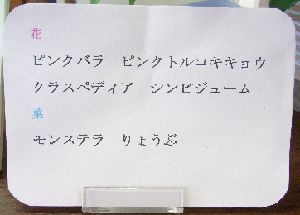 花
ピンクバラ　ピンクトルコキキョウ
クラスペディア　シンビジューム
葉
モンステラ　りょうぶ